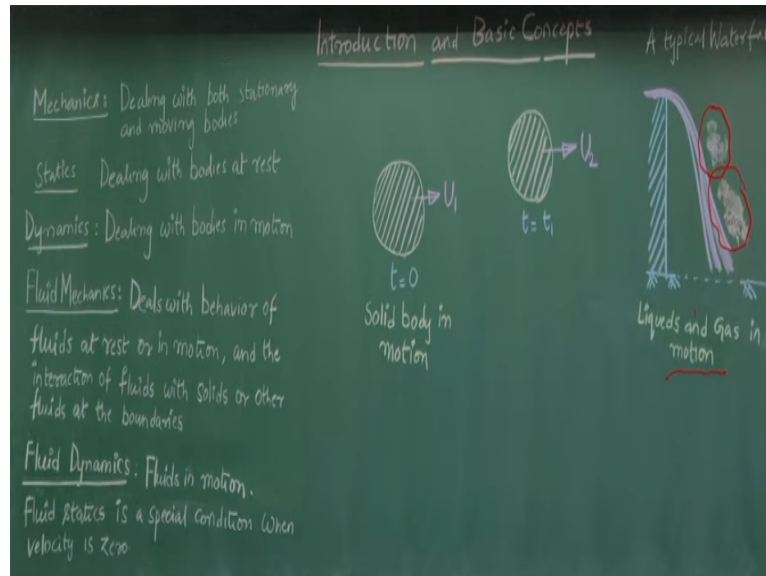 Introduction and Basic Concepts
A typical Waterfal
Mechanics: Dealing with both stationary
and moving bodies
Statics Dealing with bodies at rest
Dynamics: Dealing with bodies in motion
Fluid Mechanics: Deals with behavior of
fluids at rest or in motion, and the
interaction of fluids with solids or other
fluids at the boundaries
Fluid Dynamics: Fluids in motion.
Fluid statics is a special condition when
velocity is zero.
U1
t=0
U2
t=t1
Solid body in
motion
Liqueds and Gas in
motion